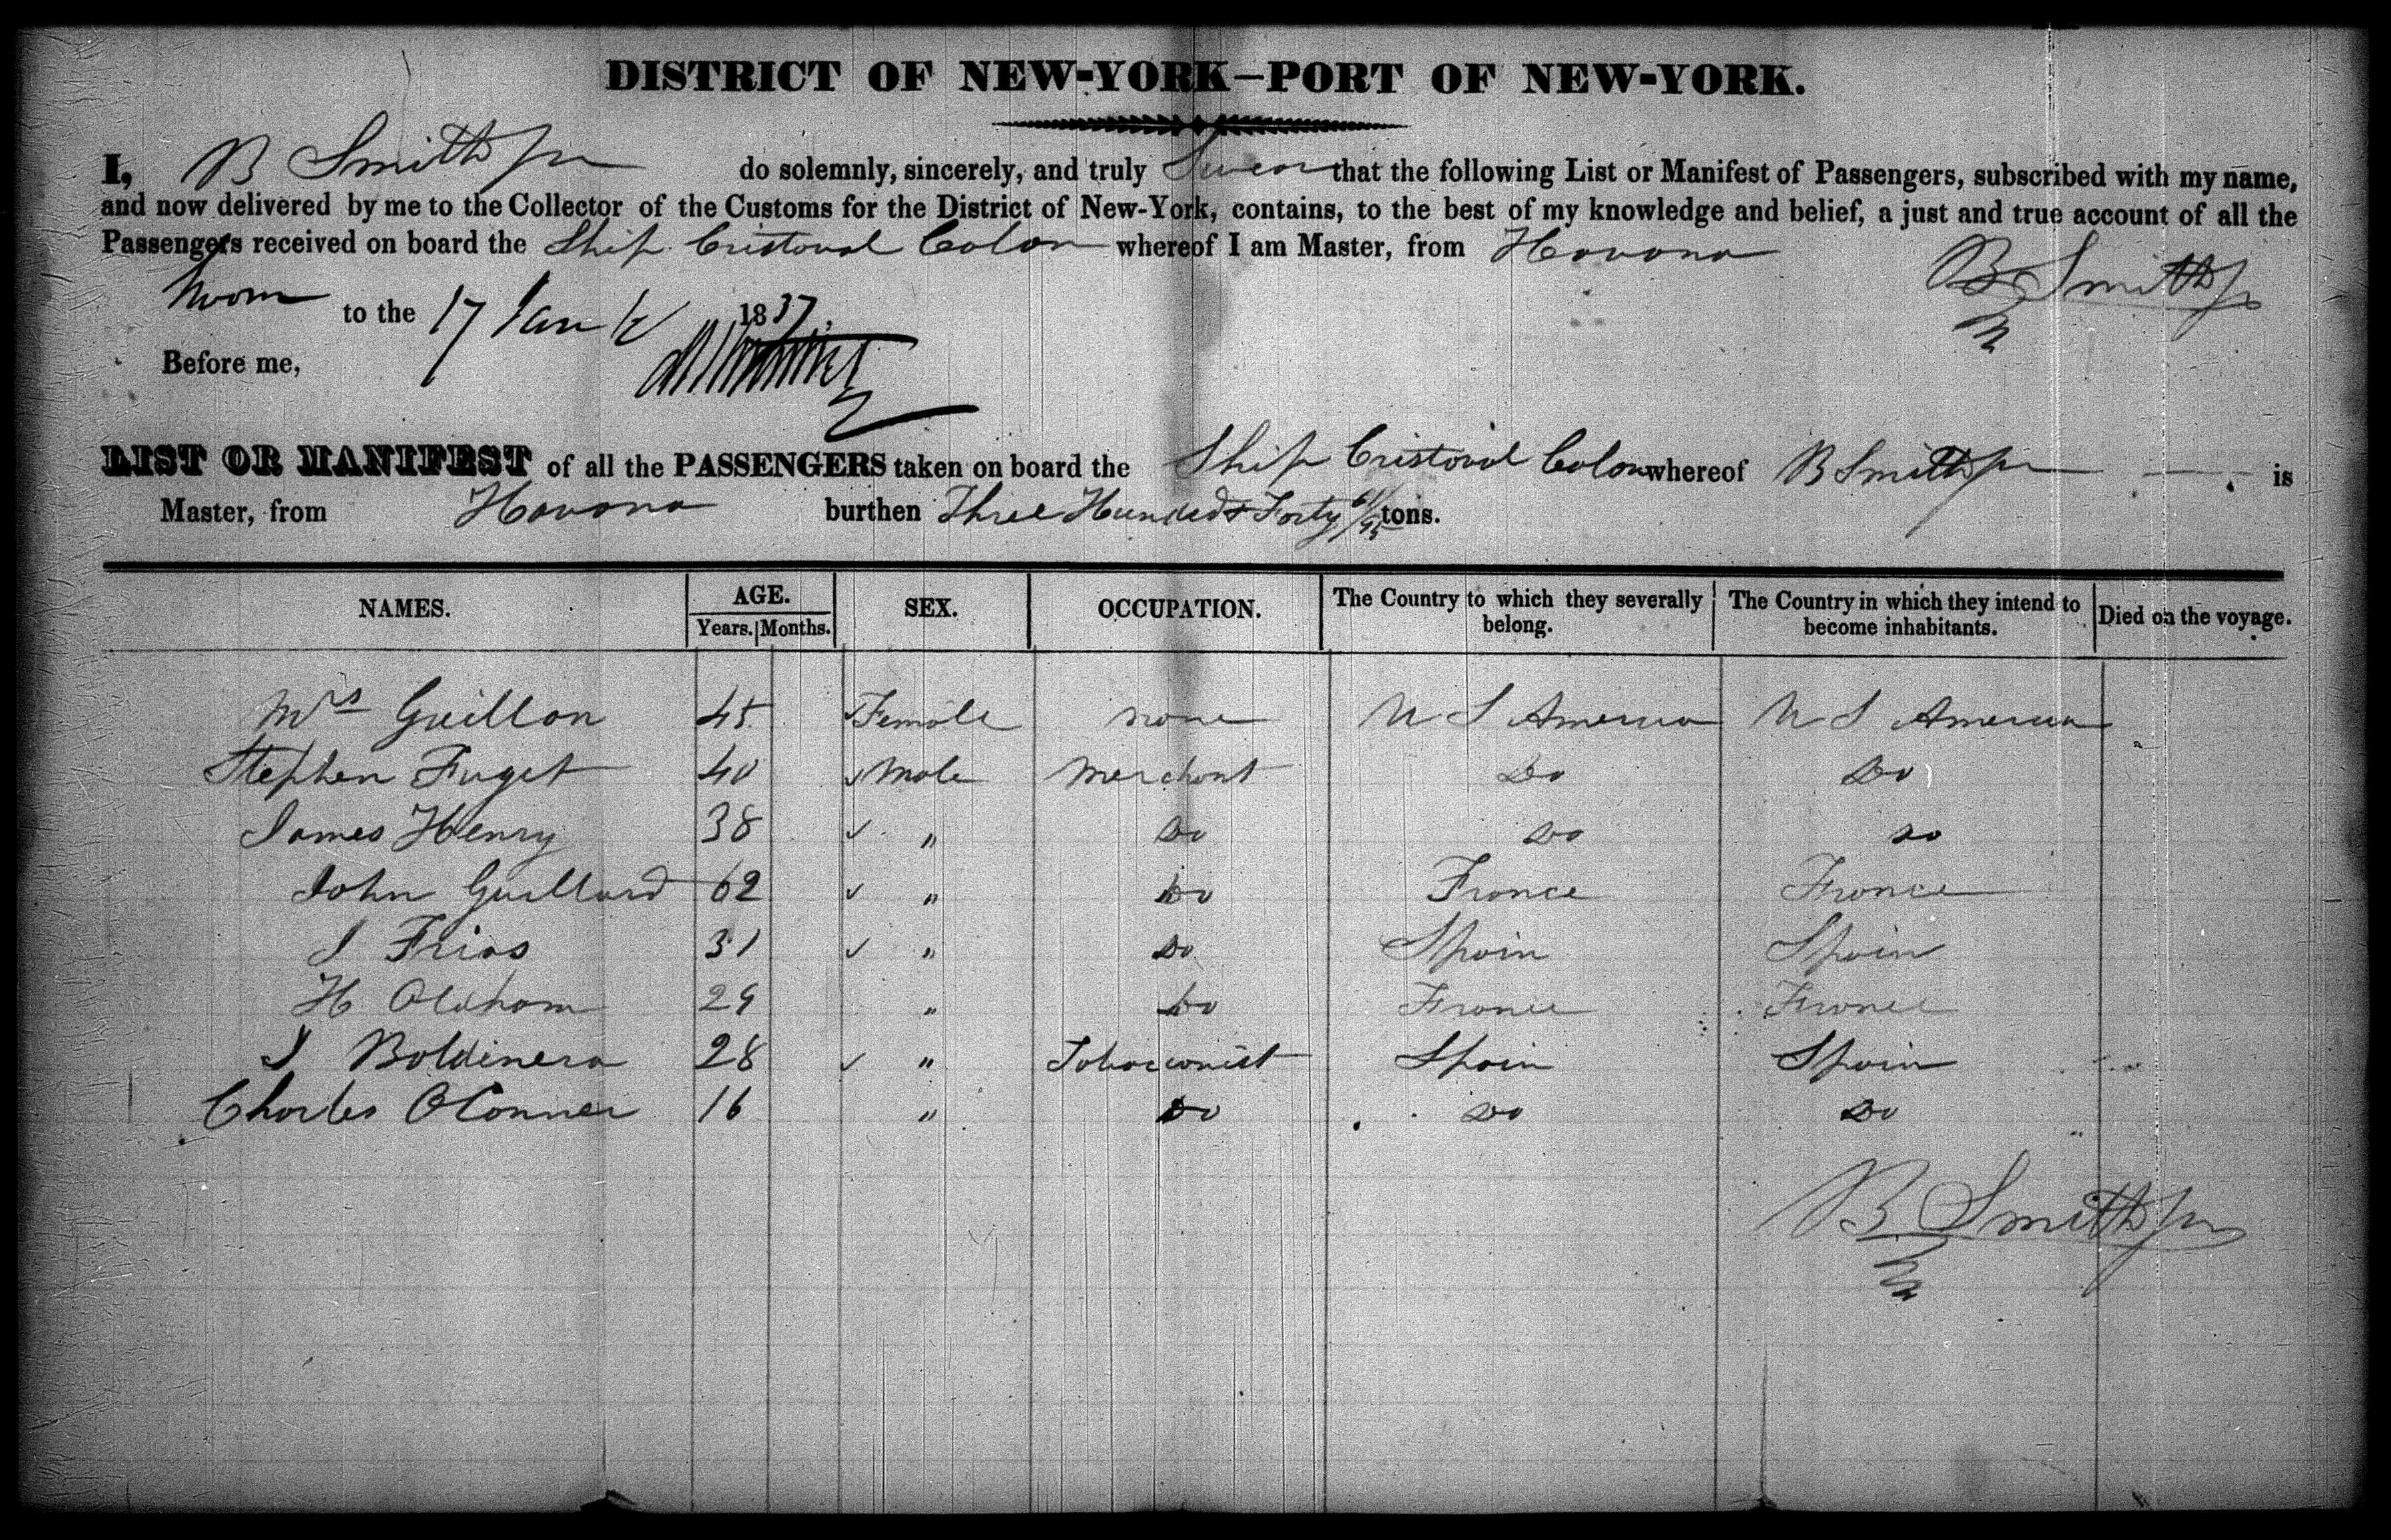 DISTRICT OF NEW-YORK—PORT OF NEW-YORK.
I, B Smith Jr do solemnly, sincerely, and truly Swear that the following List or Manifest of Passengers, subscribed with my name,
and now delivered by me to the Collector of the Customs for the District of New-York, contains, to the best of my knowledge and belief, a just and true account of all the
Passengers received on board the Ship Cristoval Colon whereof I am Master, from Havana
B Smith Jr
Sworn to the 17 Jany 1837
Before me,
LIST OR MANIFEST of all the PASSENGERS taken on board the Ship Cristoval Colon whereof B Smith Jr is
Master, from Havana burthen Three Hundred & Forty 61/95 tons.
NAMES. AGE. SEX. OCCUPATION. The Country to which they severally belong. The Country in which they intend to become inhabitants. Died on the voyage.
Years. Months.
Mrs Guillon 45 Female none U S America U S America
Stephen Fuget 40 Male Merchant Do Do
James Henry 38 " Do Do Do
John Guillard 62 " Do France France
J Frias 31 " Do Spain Spain
H Oldham 29 " Do France France
J Boldinera 28 " Tobacconist Spain Spain
Charles OConner 16 " Do Do Do
B Smith Jr